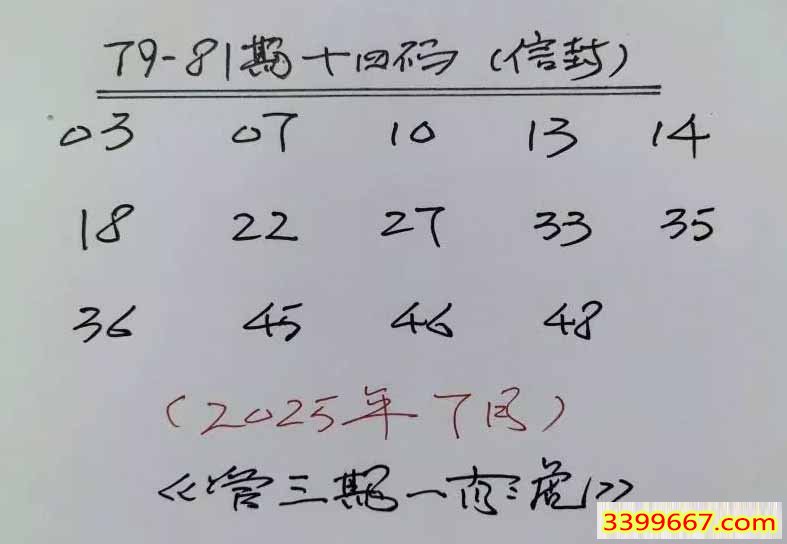 79-81期十四码（信封）
03 07 10 13 14
18 22 27 33 35
36 45 46 48
（2025年7月）
《管三期一夜
3399667.com